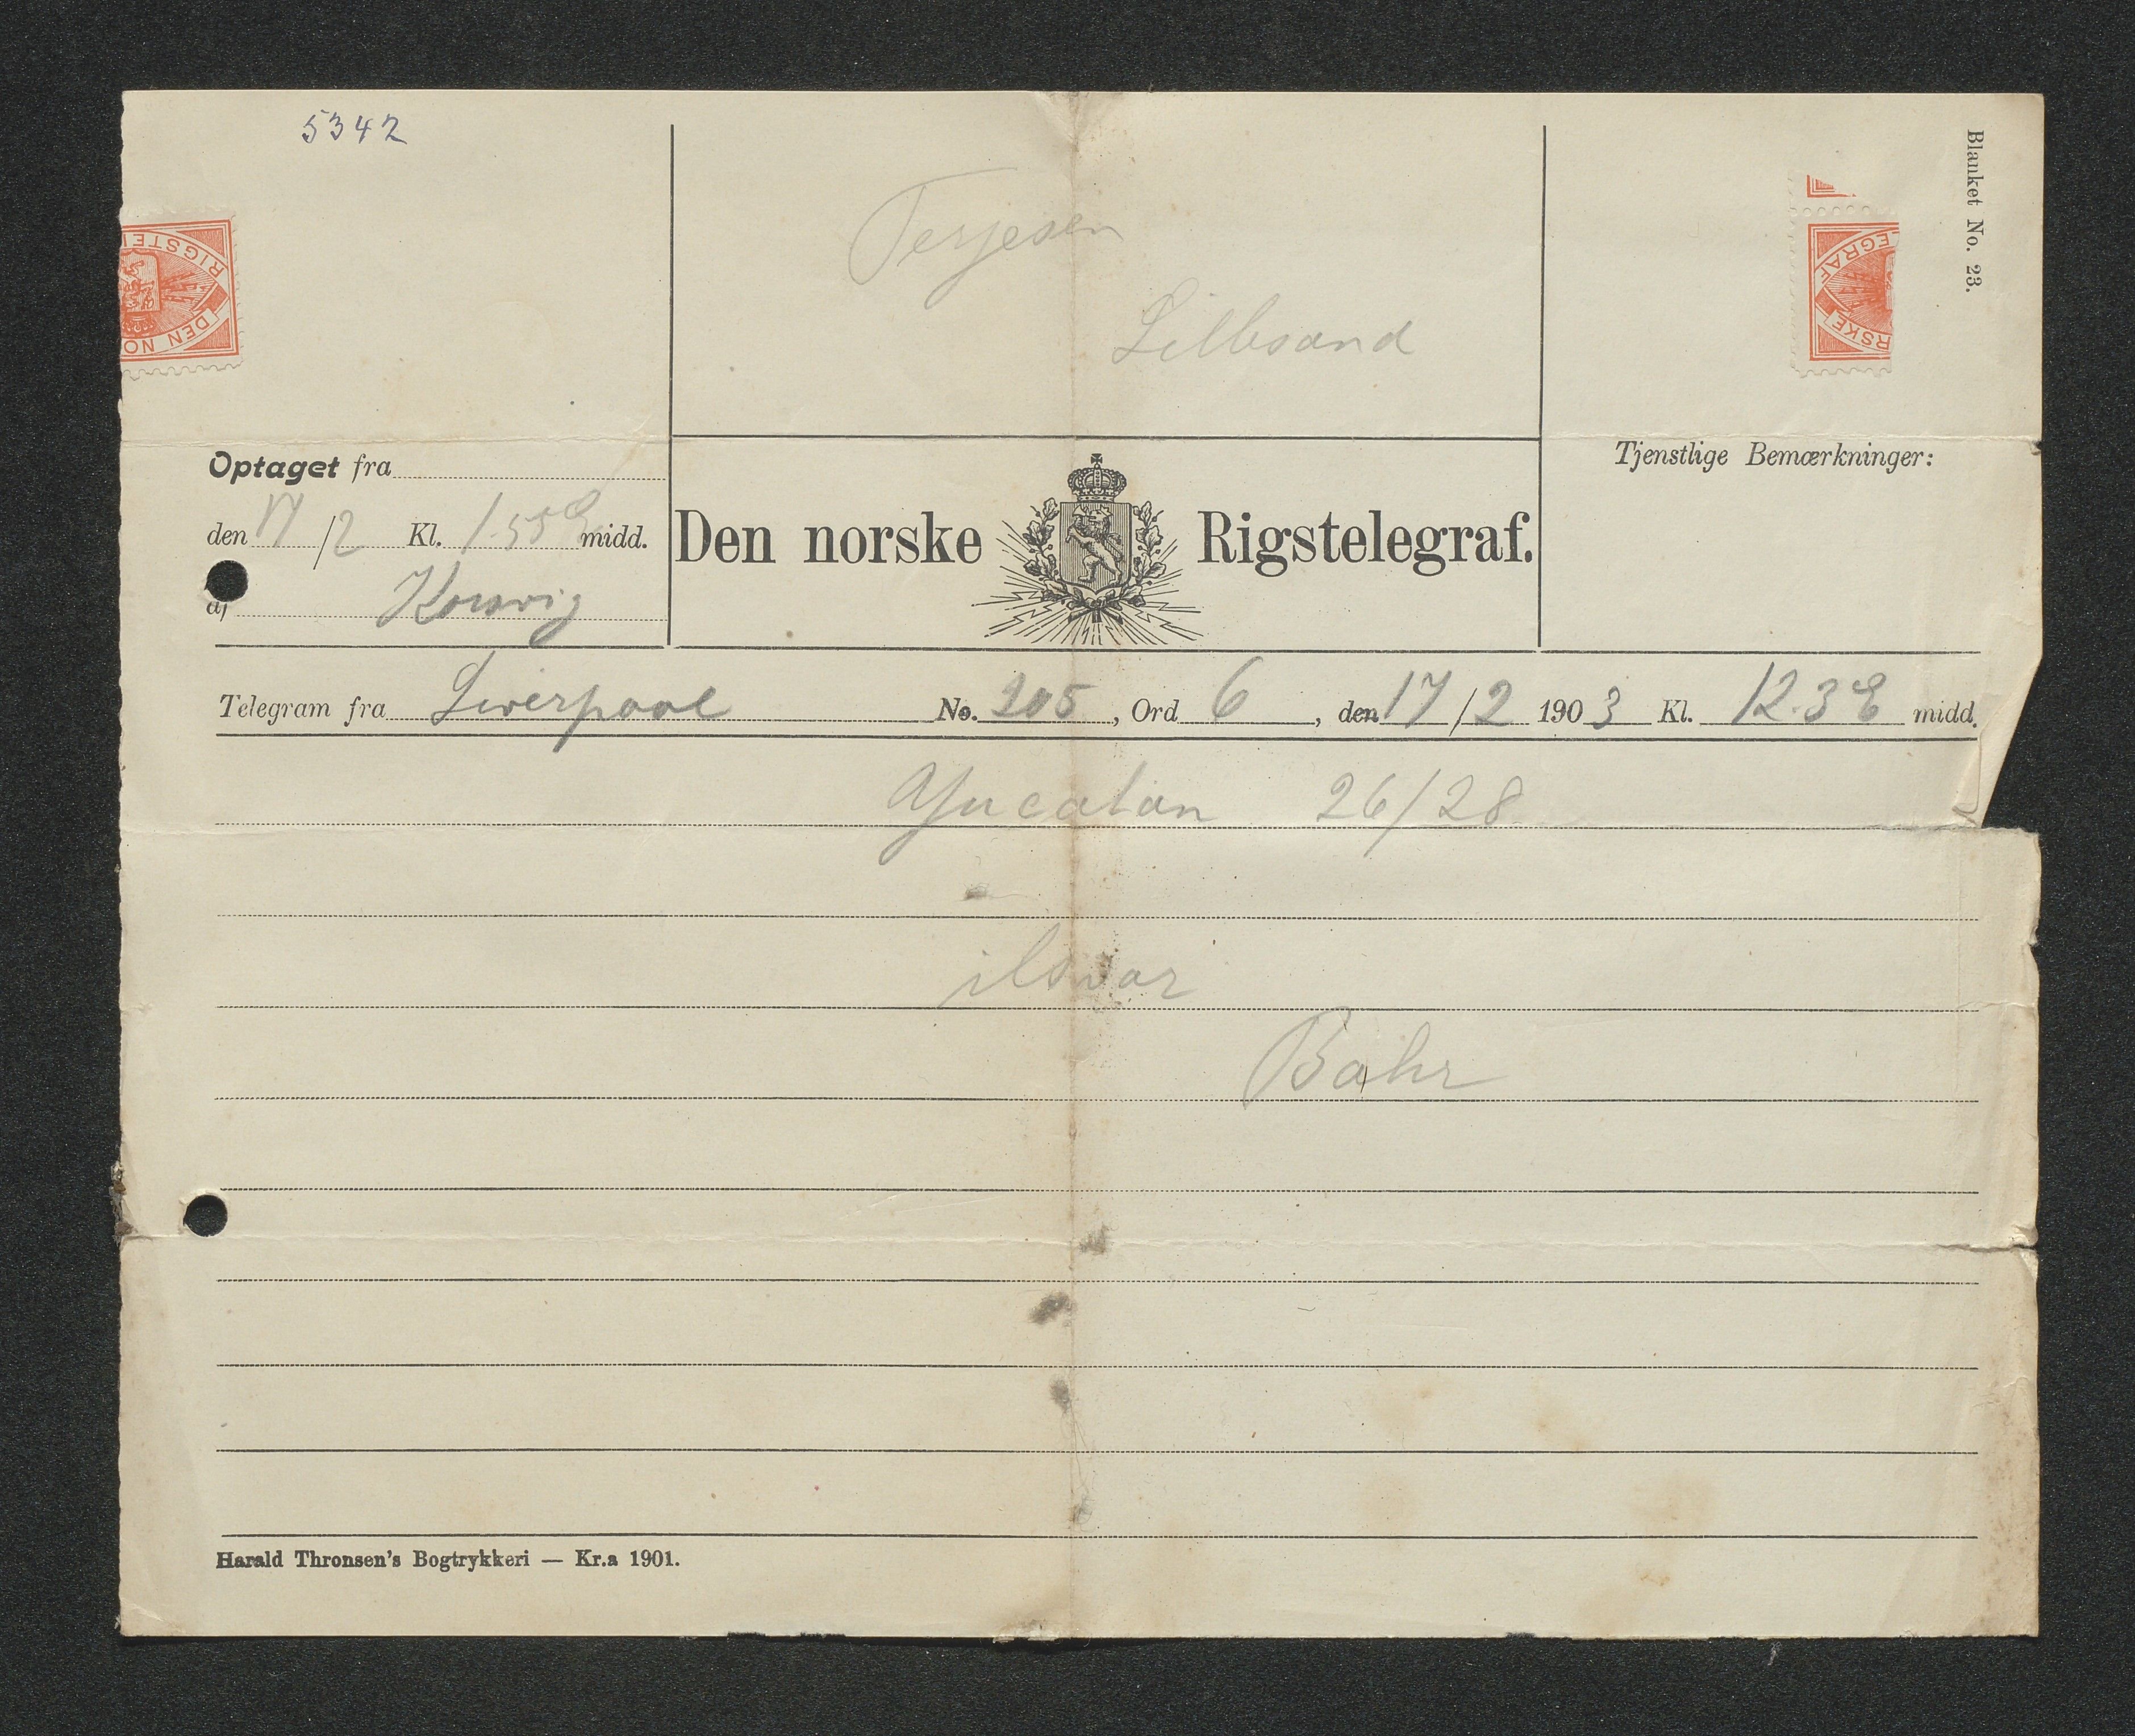 5342
Blanket No. 23.
Terjesen
Lillesand
RIGSTEL
DEN NO
EGRAF
RSKE
Optaget fra
den 17/2 Kl. 1.55 E midd.
af Korsvig
Den norske Rigstelegraf.
Tjenstlige Bemærkninger:
Telegram fra Liverpool No. 205, Ord 6, den 17/2 1903 Kl. 12.3 E midd.
Yucatan 26/28
ilsvar
Bahr
Harald Thronsen's Bogtrykkeri — Kr.a 1901.